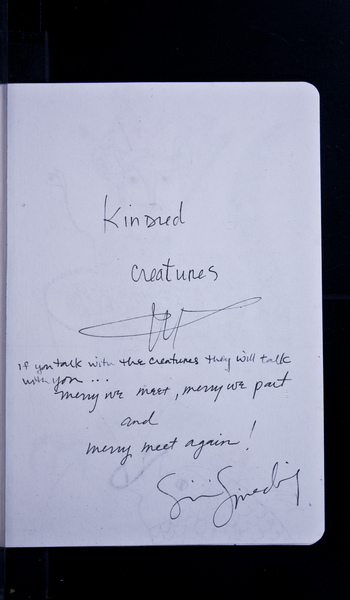 Kindred
creatures
if you talk with the creatures they will talk
with you ...
merry we meet, merry we part
and
merry meet again!